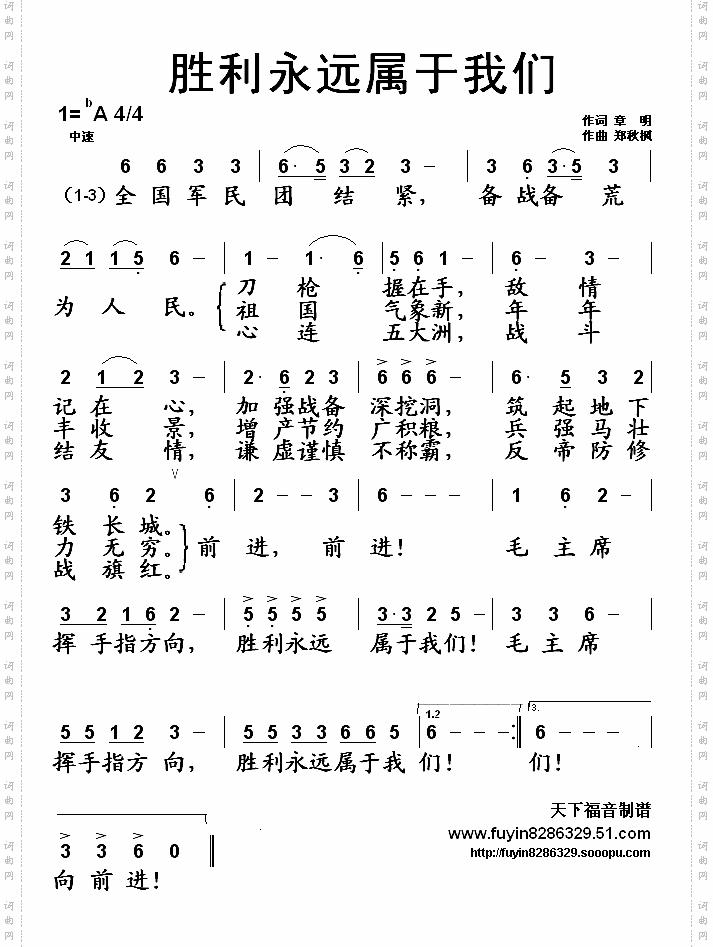 胜利永远属于我们
1= ᵇA 4/4
中速
作词 章 明
作曲 郑秋枫
6 6 3 3 | 6· 5 3 2 3 – | 3 6 3·5 3 |
（1-3）全 国 军 民 团 结 紧， 备 战 备 荒
2 1 1 5 6 – | 1 – 1· 6 | 5 6 1 – | 6 – 3 – |
为 人 民。
刀 枪 握在手， 敌 情
祖 国 气象新， 年 年
心 连 五大洲， 战 斗
2 1 2 3 – | 2· 6 2 3 | 6 6 6 – | 6· 5 3 2 |
> > >
记 在 心， 加 强战备 深挖洞， 筑 起 地 下
丰 收 景， 增 产节约 广积粮， 兵 强 马 壮
结 友 情， 谦 虚谨慎 不称霸， 反 帝 防 修
V
3 6 2 6 | 2 – – 3 | 6 – – – | 1 6 2 – |
铁 长 城。
力 无 穷。
战 旗 红。
前 进， 前 进！ 毛 主 席
> > > >
3 2 1 6 2 – | 5 5 5 5 | 3·3 2 5 – | 3 3 6 – |
挥 手 指方向， 胜利永远 属于我们！ 毛 主 席
1.2 3.
5 5 1 2 3 – | 5 5 3 3 6 6 5 | 6 – – – :‖ 6 – – – |
挥手指方 向， 胜利永远属于我 们！ 们！
天下福音制谱
www.fuyin8286329.51.com
http://fuyin8286329.sooopu.com
> > >
3 3 6 0 ‖
向 前 进！
词曲网